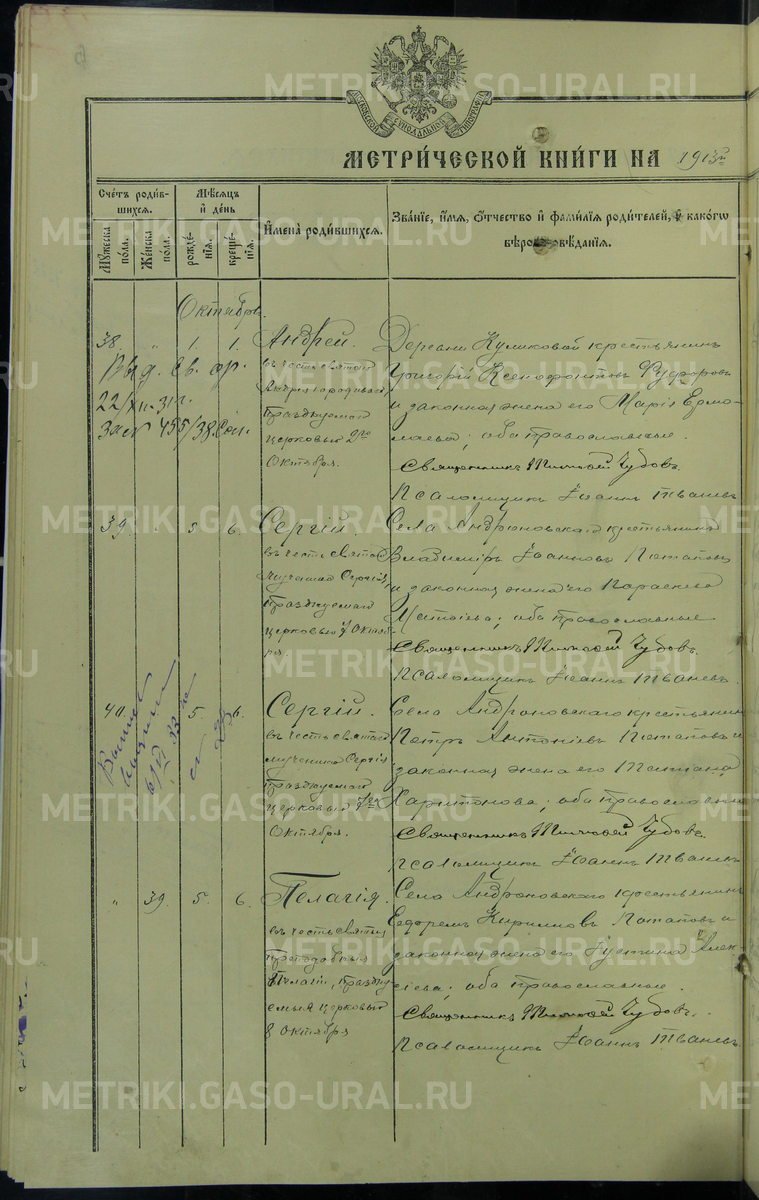 МОСКОВСКОЙ СѴНОДАЛЬНОЙ ТИПОГРАФІИ
МЕТРИ́ЧЕСКОЙ КНИ́ГИ НА 1913
Сче́тъ роди́вшихся.
Му́жеска по́ла.
Же́нска по́ла.
Мѣ́сяцъ и де́нь
рожде́нія.
креще́нія.
Имена̀ роди́вшихся.
Зва́ніе, и́мя, о́тчество и фами́лія роди́телей, и како́гѡ
вѣроисповѣ́данія.
Октябрь
38. " 1. 1.
Выд. св. ор.
22/XII-31 г.
455/38
Андрей.
въ честь святого
Андрея юродиваго
празднуемаго
церковью 2го
Октября.
Деревни Куликовой крестьянинъ
Григорій Ксенофонтовъ Федоровъ
и законная жена его Марія Ермо-
лаева; оба православные.
Священникъ Чудовъ.
Псаломщикъ Іоаннъ Ивановъ
39. 5. 6.
Сергій.
въ честь святого
мученика Сергія,
празднуемаго
церковью 7 Октяб-
ря
Села Андроновскаго крестьянинъ
Владиміръ Іоанновъ Потаповъ
и законная жена его Параскева
оба православные
Священникъ Чудовъ.
Псаломщикъ Іоаннъ Ивановъ.
40. 5. 6.
Сергій.
въ честь святого
мученика Сергія
празднуемаго
церковью 7го
Октября.
Села Андроновскаго крестьянинъ
Петръ Антоніевъ Потаповъ и
законная жена его Татіана
Харитонова; оба православные
Священникъ Чудовъ.
Псаломщикъ Іоаннъ Ивановъ
" 39. 5. 6.
Пелагія.
въ честь святыя
преподобныя
Пелагіи, праздну-
емыя церковью
8 Октября
Села Андроновскаго крестьянинъ
Кирилловъ Потаповъ и
законная жена его Іустина Алек-
сіева; оба православные.
Священникъ Чудовъ.
Псаломщикъ Іоаннъ Ивановъ.
METRIKI.GASO-URAL.RU